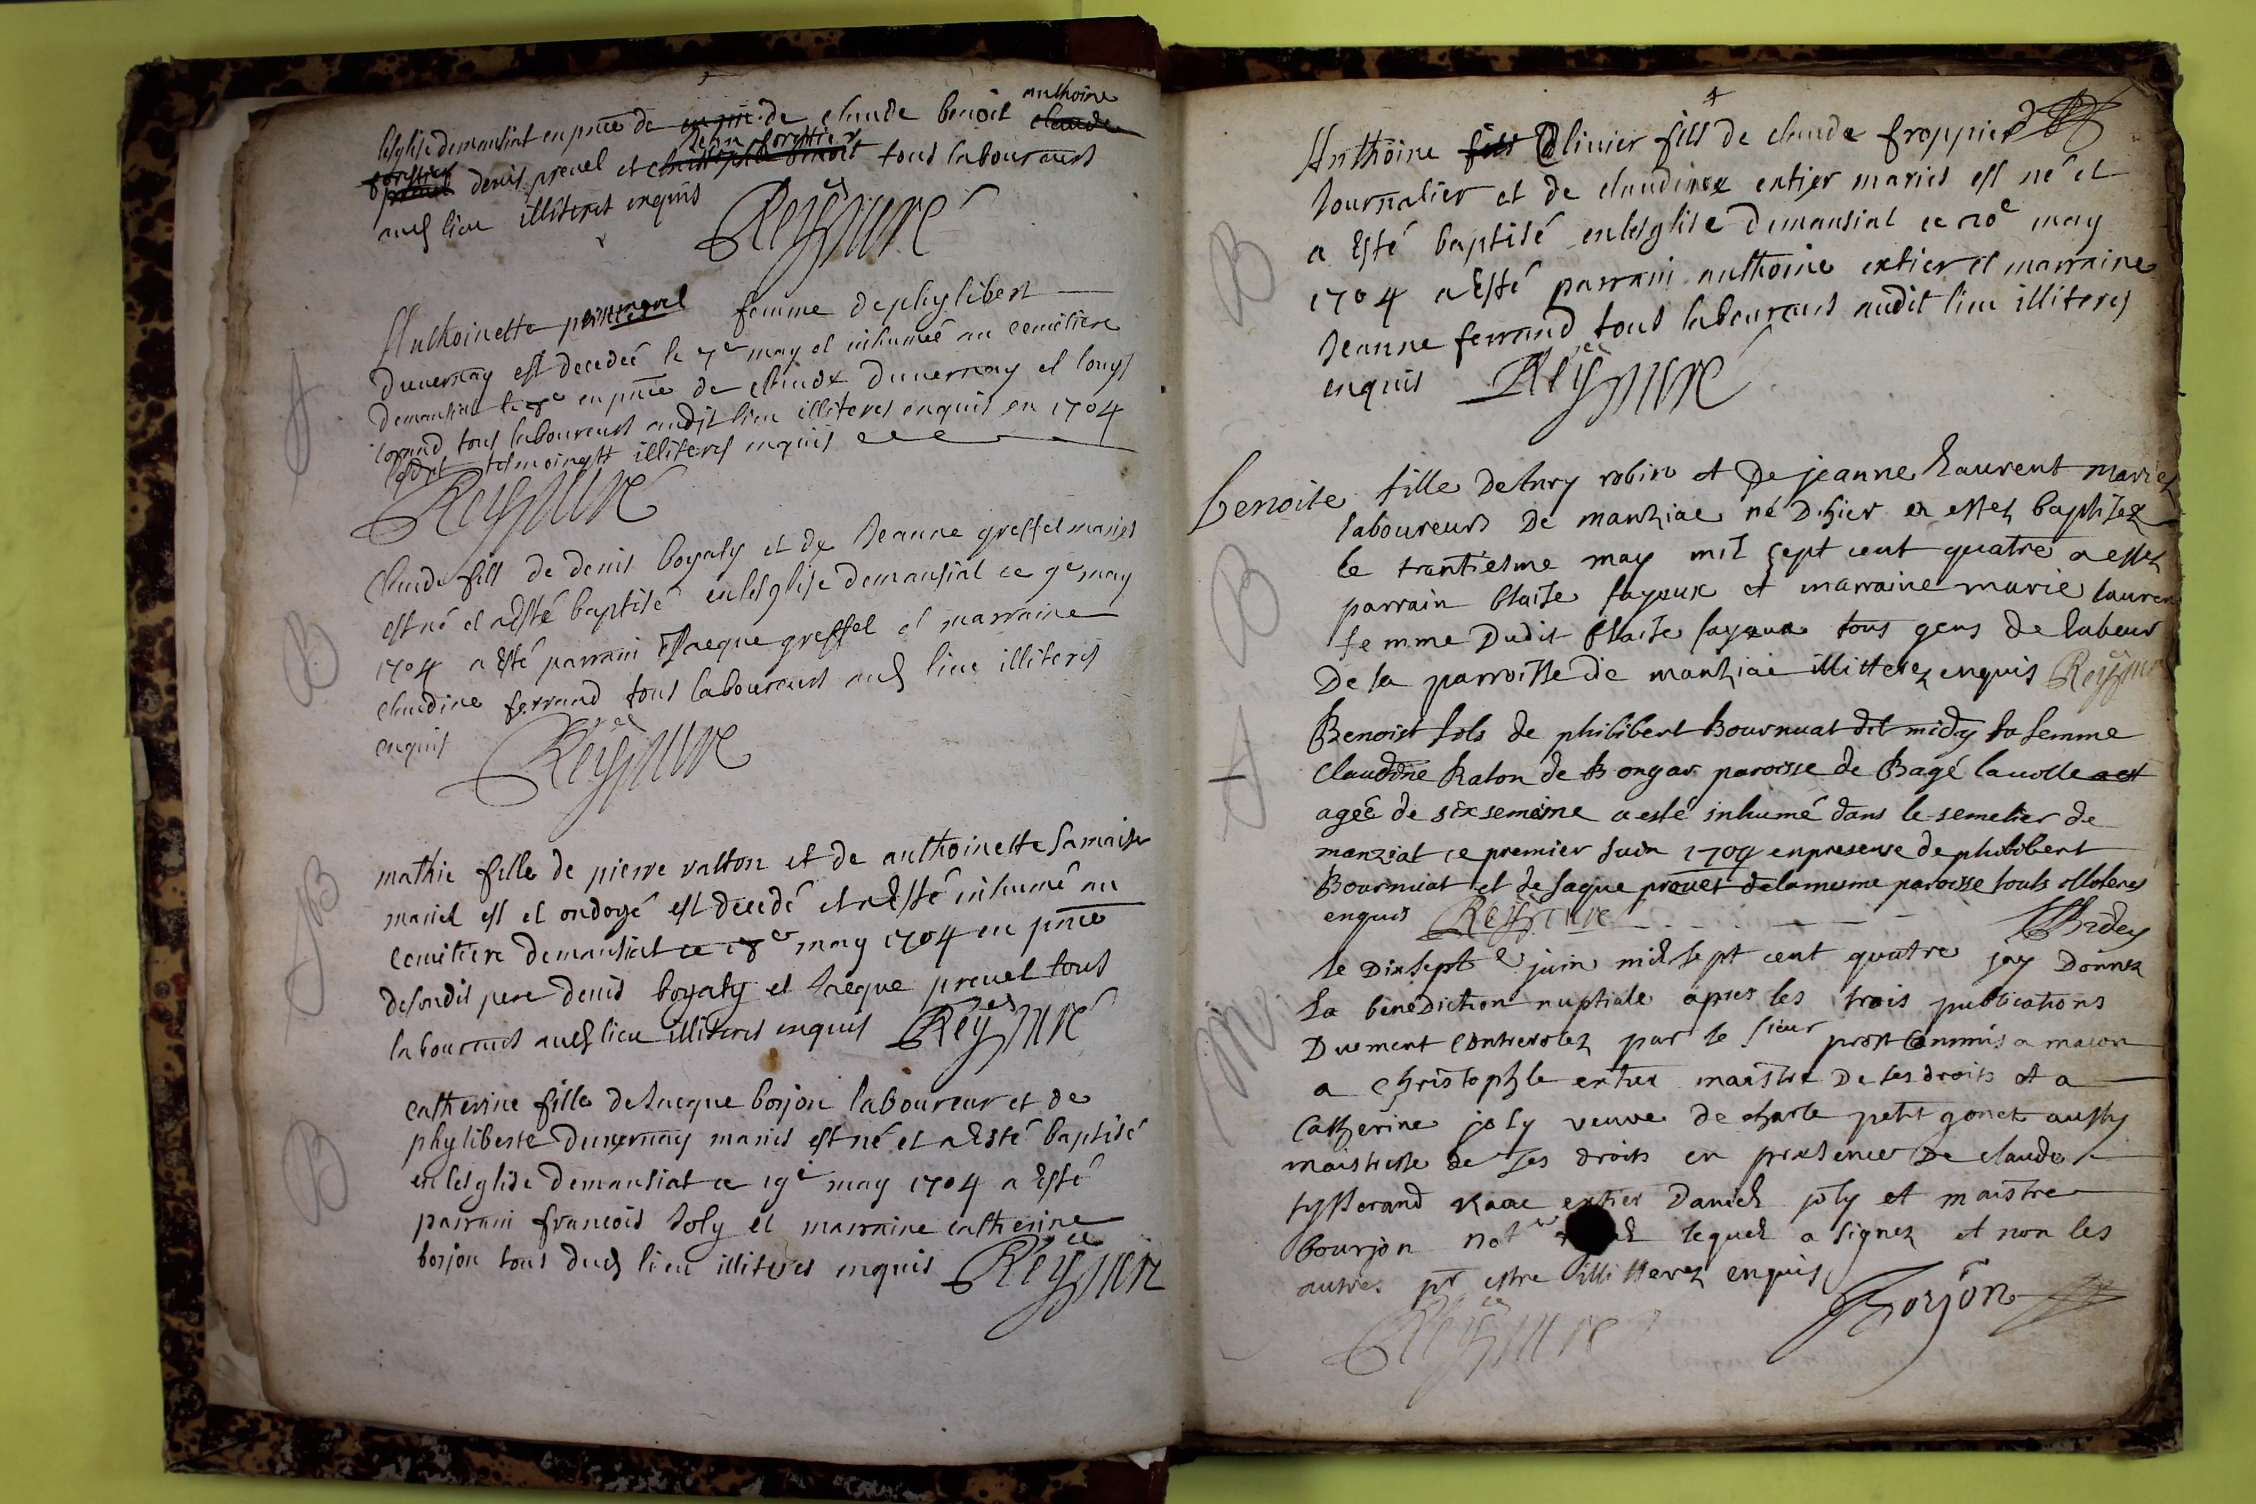 lesglise demansiat en pnce de en pnce de claude benoit anthoine claude
forestier preuel denis preuel et jean forestier christophle benoit tous laboureurs
aud lieu illiteres enquis
Reyssure
Anthoinette femme de phylibert
Duuernay est decedeé le 7e may et inhumeé au cemitiere
demansiat le 8e en pnce de claude Duuernay et louys
tous laboureurs audit lieu illiteres enquis en 1704
tesmoings illiteres enquis
Reyssure
B
Claude fils de denis boyaty et de Jeanne greffet mariés
est né et a Esté baptisé en lesglise demansiat ce 9e may
1704 a Esté parrain Jacque greffet et marraine
claudine ferrand tous laboureurs aud lieu illiteres
enquis
Reyssure
B
mathie fille de pierre vatton et de anthoinette
mariés est et ondoyé est decedé et a Esté inhumé au
cemitiere demansiat ce 18e may 1704 en pnce
desondit pere denis boyaty et Jacque preuel tous
laboureurs aud lieu illiteres enquis Reyssure
B
catherine fille de Jacque borjon laboureur et de
phyliberte Duuernay mariés est né et a Esté baptisé
en lesglise demansiat ce 19e may 1704 a Esté
parrain francois Joly et marraine catherine
borjon tous dud lieu illiteres enquis Reyssure
Anthoine fils Olinier fils de claude froppier
Journalier et de claudine entier mariés est né et
a Esté baptisé en lesglise demansiat ce 20e may
1704 a Esté parrain anthoine entier et marraine
Jeanne ferrand tous laboureurs audit lieu illiteres
enquis Reyssure
B
benoite fille de Anry robin et De jeanne Laurent mariez
laboureurs De manziac né D hier er estez baptisez
le trantiesme may mil sept cent quatre a estez
parrain blaise fayoux et marraine marie lauren
femme Dudit blaise fayoux tous gens de labeur
De la parroisse de manziac illitterez enquis Reyssure
Benoist fils de philibert Bournuat dit midy sa femme
Claudine Raton de Bongar paroisse de Bagé lauolle a est
ageé de six semeine a esté inhumé dans le semetier de
manziat ce premier Juin 1704 en presense de philibert
Bournuat et de Jaque prouet de la mesme paroisse touts
enquis Reyssure
le Dixsept e juin mil sept cent quatre jay Donnez
La benediction nuptiale apres les trois publications
Duement Controrolez par le sieur prost Commis a macon
a christophle entier maistre De ses droits et a
Catherine joly veuve de charle petit gonet aussy
maistresse de ses droits en presence De claude
tysserand entier Daniel joly et maistre
bourjon lequel a signez et non les
autres pr estre illitterez enquis
Borjon
Reyssure